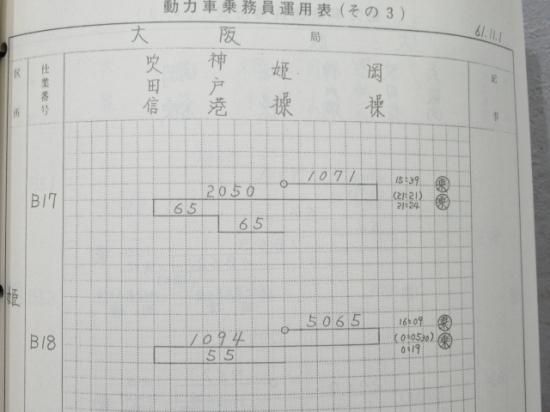 動力車乗務員運用表(その3)
大阪局
61.11.1
区所
仕業番号
吹田信
神戸港
姫操
岡操
記事
姫
B17
1071
2050
65
65
15:39
(21:21)
21:24
B18
5065
1094
55
16:09
(0:0530)
0:19